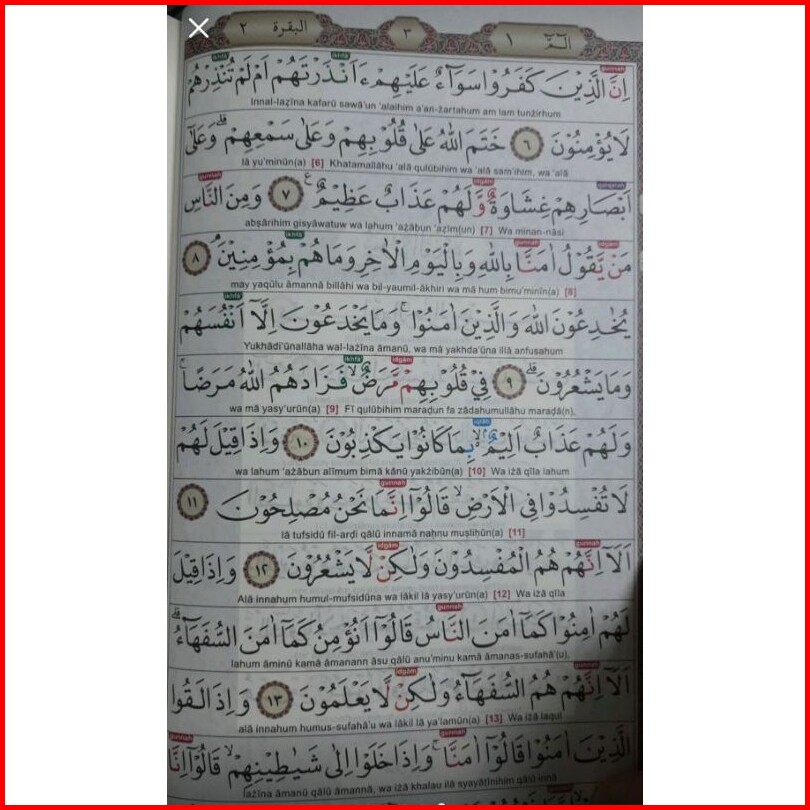 الۤمّۤ ١
٣
البقرة ٢
اِنَّ الَّذِيْنَ كَفَرُوْا سَوَاۤءٌ عَلَيْهِمْ ءَاَنْذَرْتَهُمْ اَمْ لَمْ تُنْذِرْهُمْ
Innal-lażīna kafarū sawā'un 'alaihim a'an-żartahum am lam tunżirhum
لَا يُؤْمِنُوْنَ ٦ خَتَمَ اللّٰهُ عَلٰى قُلُوْبِهِمْ وَعَلٰى سَمْعِهِمْ ۗ وَعَلٰٓى
lā yu'minūn(a) [6] Khatamallāhu 'alā qulūbihim wa 'alā sam'ihim, wa 'alā
اَبْصَارِهِمْ غِشَاوَةٌ وَّلَهُمْ عَذَابٌ عَظِيْمٌ ٧ وَمِنَ النَّاسِ
abṣārihim gisyāwatuw wa lahum 'ażābun 'aẓīm(un) [7] Wa minan-nāsi
مَنْ يَّقُوْلُ اٰمَنَّا بِاللّٰهِ وَبِالْيَوْمِ الْاٰخِرِ وَمَا هُمْ بِمُؤْمِنِيْنَ ۘ ٨
may yaqūlu āmannā billāhi wa bil-yaumil-ākhiri wa mā hum bimu'minīn(a) [8]
يُخٰدِعُوْنَ اللّٰهَ وَالَّذِيْنَ اٰمَنُوْا ۚ وَمَا يَخْدَعُوْنَ اِلَّآ اَنْفُسَهُمْ
Yukhādi'ūnallāha wal-lażīna āmanū, wa mā yakhda'ūna illā anfusahum
وَمَا يَشْعُرُوْنَ ۗ ٩ فِيْ قُلُوْبِهِمْ مَّرَضٌۙ فَزَادَهُمُ اللّٰهُ مَرَضًاۚ
wa mā yasy'urūn(a) [9] Fī qulūbihim maraḍun fa zādahumullāhu maraḍā(n),
وَلَهُمْ عَذَابٌ اَلِيْمٌ ۢ ەۙ بِمَا كَانُوْا يَكْذِبُوْنَ ١٠ وَاِذَا قِيْلَ لَهُمْ
wa lahum 'ażābun alīmum bimā kānū yakżibūn(a) [10] Wa iżā qīla lahum
لَا تُفْسِدُوْا فِى الْاَرْضِۙ قَالُوْٓا اِنَّمَا نَحْنُ مُصْلِحُوْنَ ١١
lā tufsidū fil-arḍi qālū innamā naḥnu muṣliḥūn(a) [11]
اَلَآ اِنَّهُمْ هُمُ الْمُفْسِدُوْنَ وَلٰكِنْ لَّا يَشْعُرُوْنَ ١٢ وَاِذَا قِيْلَ
Alā innahum humul-mufsidūna wa lākil lā yasy'urūn(a) [12] Wa iżā qīla
لَهُمْ اٰمِنُوْا كَمَآ اٰمَنَ النَّاسُ قَالُوْٓا اَنُؤْمِنُ كَمَآ اٰمَنَ السُّفَهَاۤءُ ۗ
lahum āminū kamā āmanann āsu qālū anu'minu kamā āmanas-sufahā'(u),
اَلَآ اِنَّهُمْ هُمُ السُّفَهَاۤءُ وَلٰكِنْ لَّا يَعْلَمُوْنَ ١٣ وَاِذَا لَقُوا
alā innahum humus-sufahā'u wa lākil lā ya'lamūn(a) [13] Wa iżā laqul
الَّذِيْنَ اٰمَنُوْا قَالُوْٓا اٰمَنَّا ۚ وَاِذَا خَلَوْا اِلٰى شَيٰطِيْنِهِمْ ۙ قَالُوْٓا اِنَّا
lażīna āmanū qālū āmannā, wa iżā khalau ilā syayāṭīnihim qālū innā